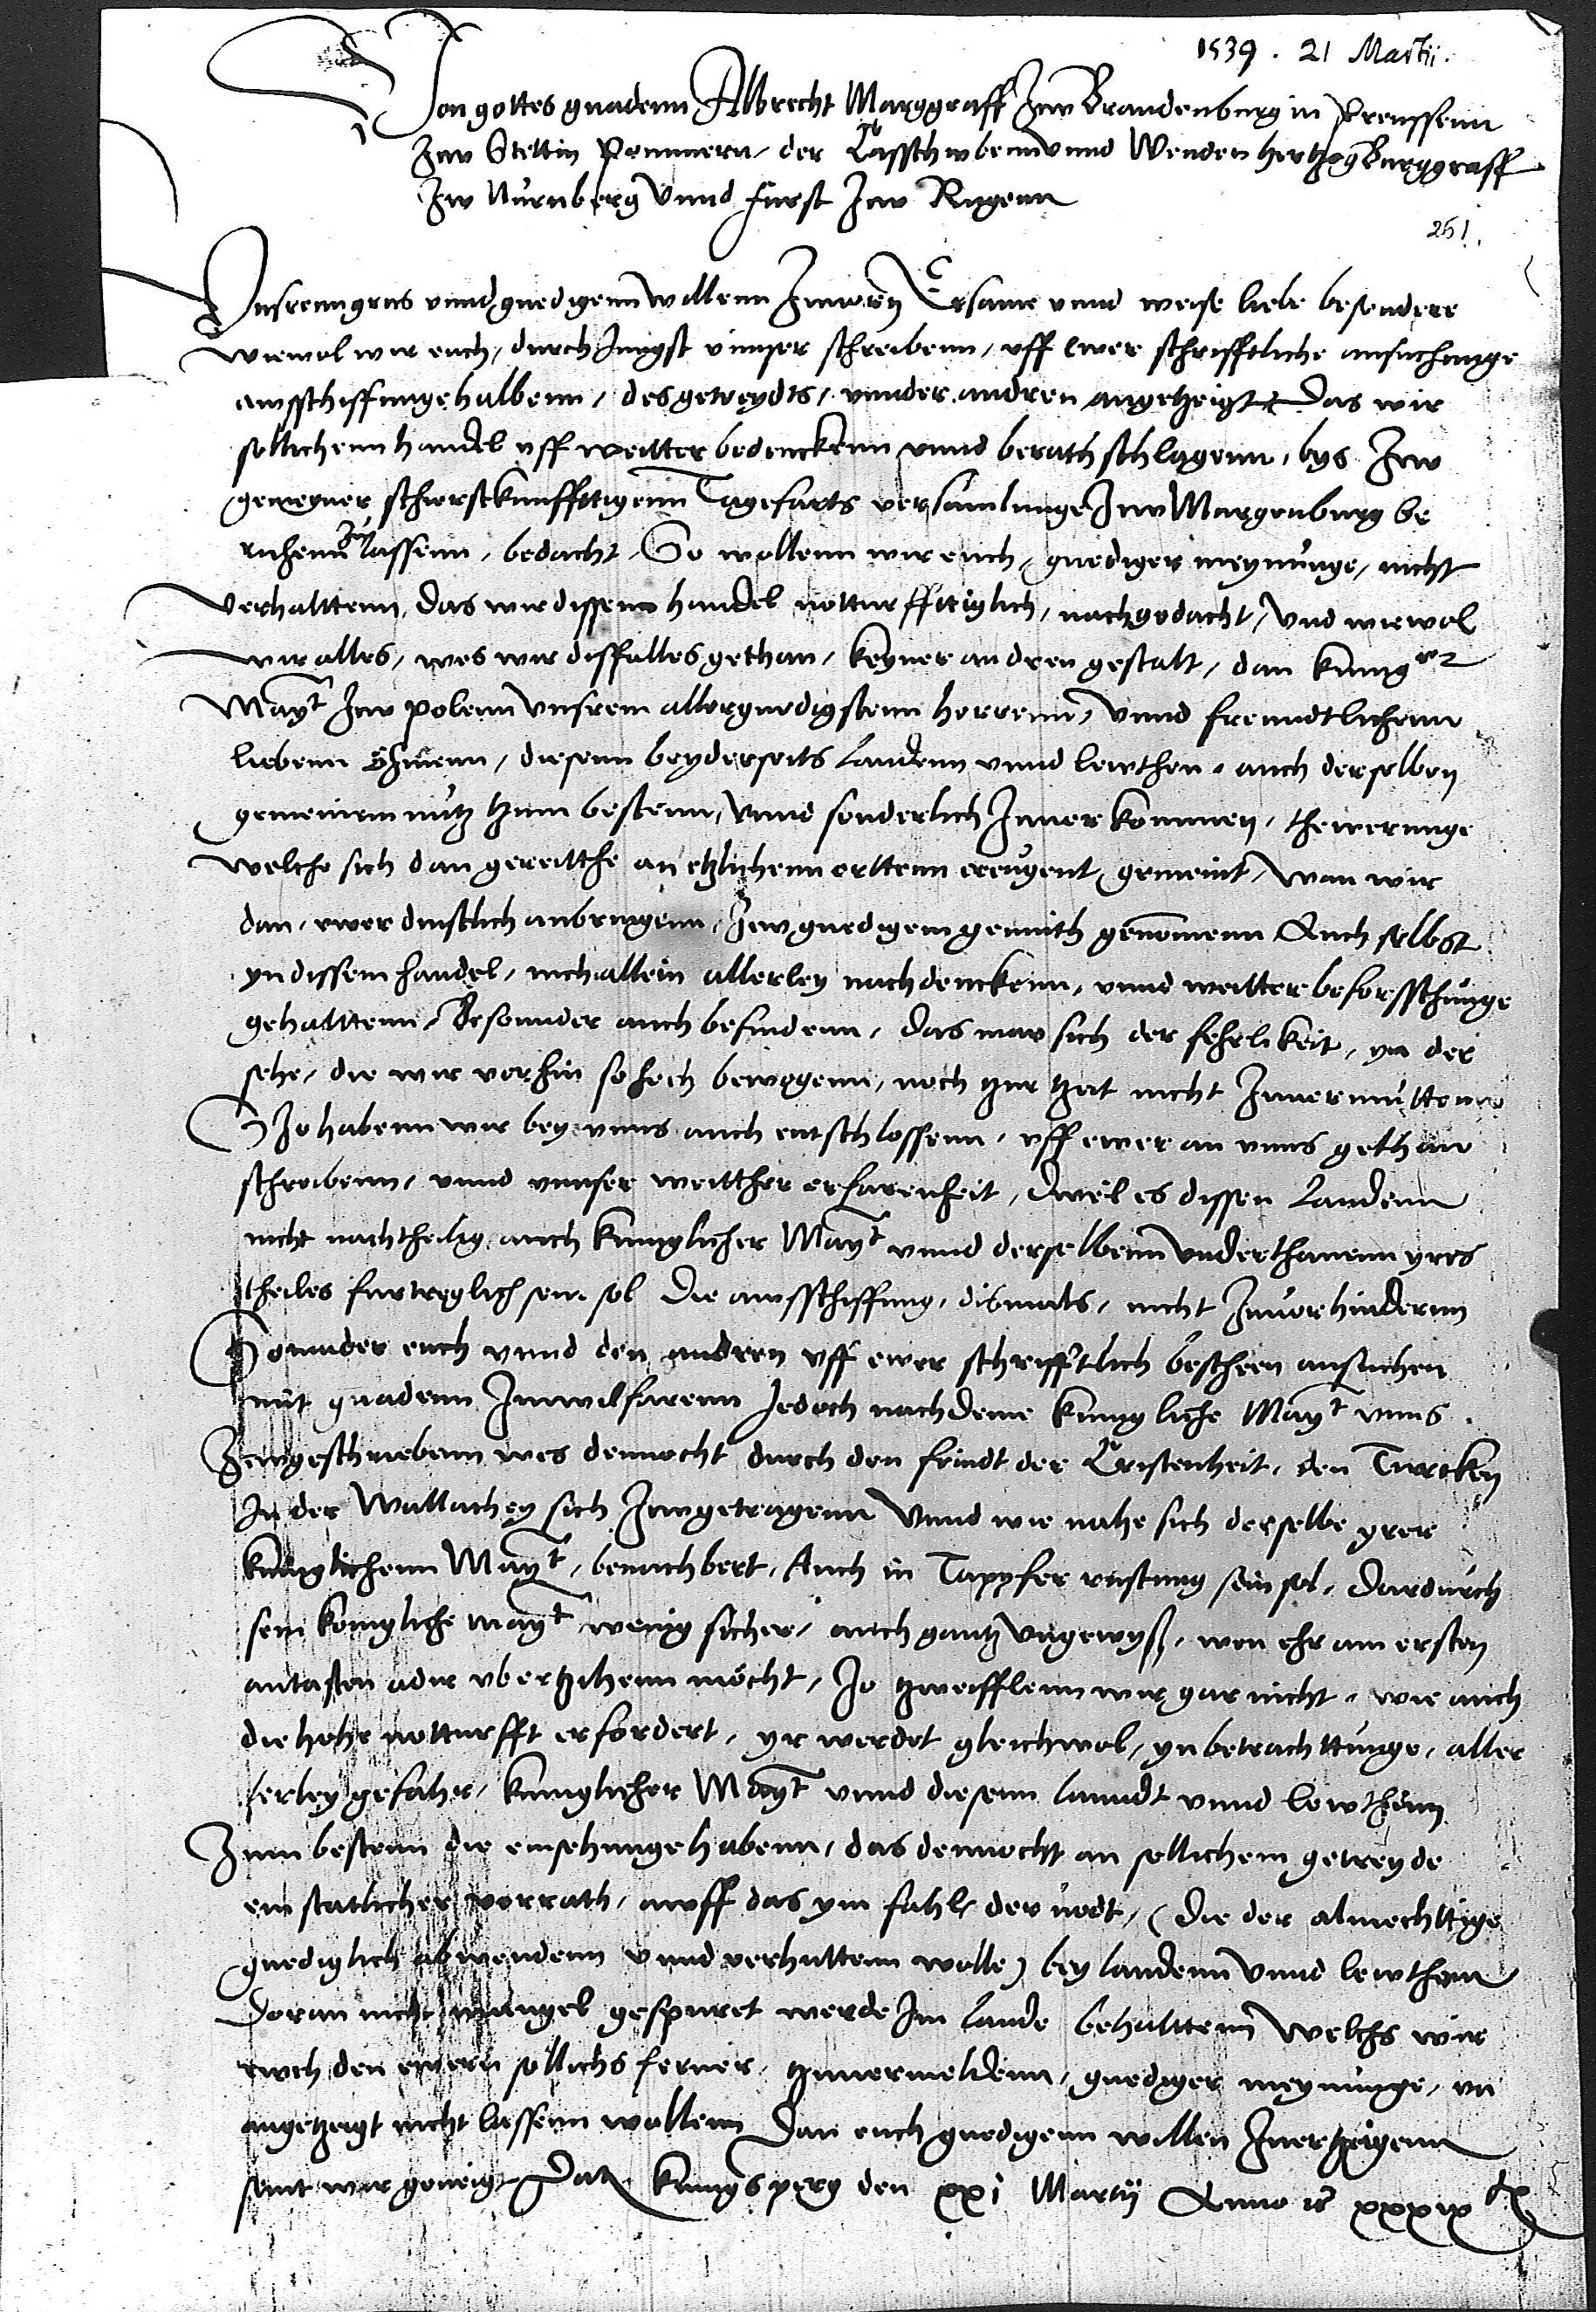 1539 . 21 Martii.
Von gottes gnadenn Albrecht Marggraff Zcw Brandenburg in Preussenn
Zcw Stettin Pommern / der Casschwbenn vnnd Wenden hertzog Burggraff
Zcw Nurnberg vnnd Furst Zcw Rugenn
251.
Vnsernn grus vnnd gnedigenn willenn Zuuorn Ersame vnnd weise liebe besondere
Wiewol wir euch / durch Jungst vnnser schreibenn / vff ewer schrifftliche ansuchunge
awsschiffunge halbenn / des getreydts / vnnder andren angetzeigt Das wir
sollichenn handel vff weitter bedenckenn vnnd berathschlagenn / bys Zcw
gemeyner schirstkunfftigenn Tagefarts versamlunge Zcw Margenburg be
ruhenn Zu lassenn / bedacht / So wollenn wir euch / gnediger meynunge / nicht
verhalttenn / das wir dissenn handel notturfftiglich / nachgedacht / Vnd wiewol
wir alles / wes wir disfalles gethan / keyner andren gestalt / dan kunigr
Mayt Zcw polenn vnserm allergnedigstenn herrenn / vnnd freundtlichenn
liebenn Ohmenn / diesenn beyderseits Landenn vnnd lewthen / auch derselben
gemeinem nutz tzum bestenn / vnnd sonderlich Zuuorkommen / thewerunge
welche sich dan gereitthe an etzlichenn ortten ereugent / gemeint / Wan wir
dan / ewer dinstlich anbringenn / Zcw gnedigem gemuth genomenn Auch selbst
yn dissem handel / nich allein allerley nachdenckenn / vnnd weitter beforsschunge
gehalttenn / Besonnder auch befindenn / das mar sich der fehrlikeit / yn der
sehe / die wir vorhin so hoch bewogenn / noch tzur tzeit nicht Zuuormutten
So habenn wir bey vnns auch entschlossenn / vff ewer an vnns gethan
schreibenn / vnnd vnnser weitther erfarenheit / dweil es dissen Landenn
nicht nachtheilig auch kuniglicher Mayt vnnd derselbenn vnderthanenn yres
theiles furtreglich sein sol Die awsschiffung / dismals / nicht Zuuorhindernn
Sonnder euch vnnd den andren vff ewer schrifftlich bescheen ansuchen
mit gnadenn Zuuwilfarenn Jedoch nachdeme kunigliche Mayt vnns
Zcwgeschriebenn wes dennocht durch den feindt der Cristenheit / den Turcken
In der Wallachey sich Zcwgetragenn Vnnd wie nahe sich derselbe yrer
kuniglichenn Mayt / benachbert / Auch in Tapfer rustung sein sol / Dardurch
sein konigliche mayt / wenig sicher / auch gantz vngewyß / wen ehr am ersten
antasten ader vbertzihenn mocht / So tzweifflenn wir gar nicht / wie auch
die hohe notturfft erfordert / yr werdet gleichwol / yn betrachttunge / aller
lerley gefahr / kuniglicher Mayt vnnd diesenn lanndt vnnd lewthenn
Zum bestenn die einsehunge habenn / das dennocht an sollichem getreyde
ein statlicher vorrath / awff das ym fahl der nodt / (Die der almechttige
gnediglich abwendenn vnnd verhuttenn wolle) bey landenn vnnd lewthenn
Doran nicht mangel gespuret werde Im lande behalttenn Welchs wir
euch den ewern sollichs ferner / tzuuormeldenn / gnediger meynunge / vn
angetzeigt nicht lassenn wollenn Dan euch gnedigenn willen Zuertzeigenn
seint wir geneigt Dat kunigsperg den xxi Martij Anno rc xxxix